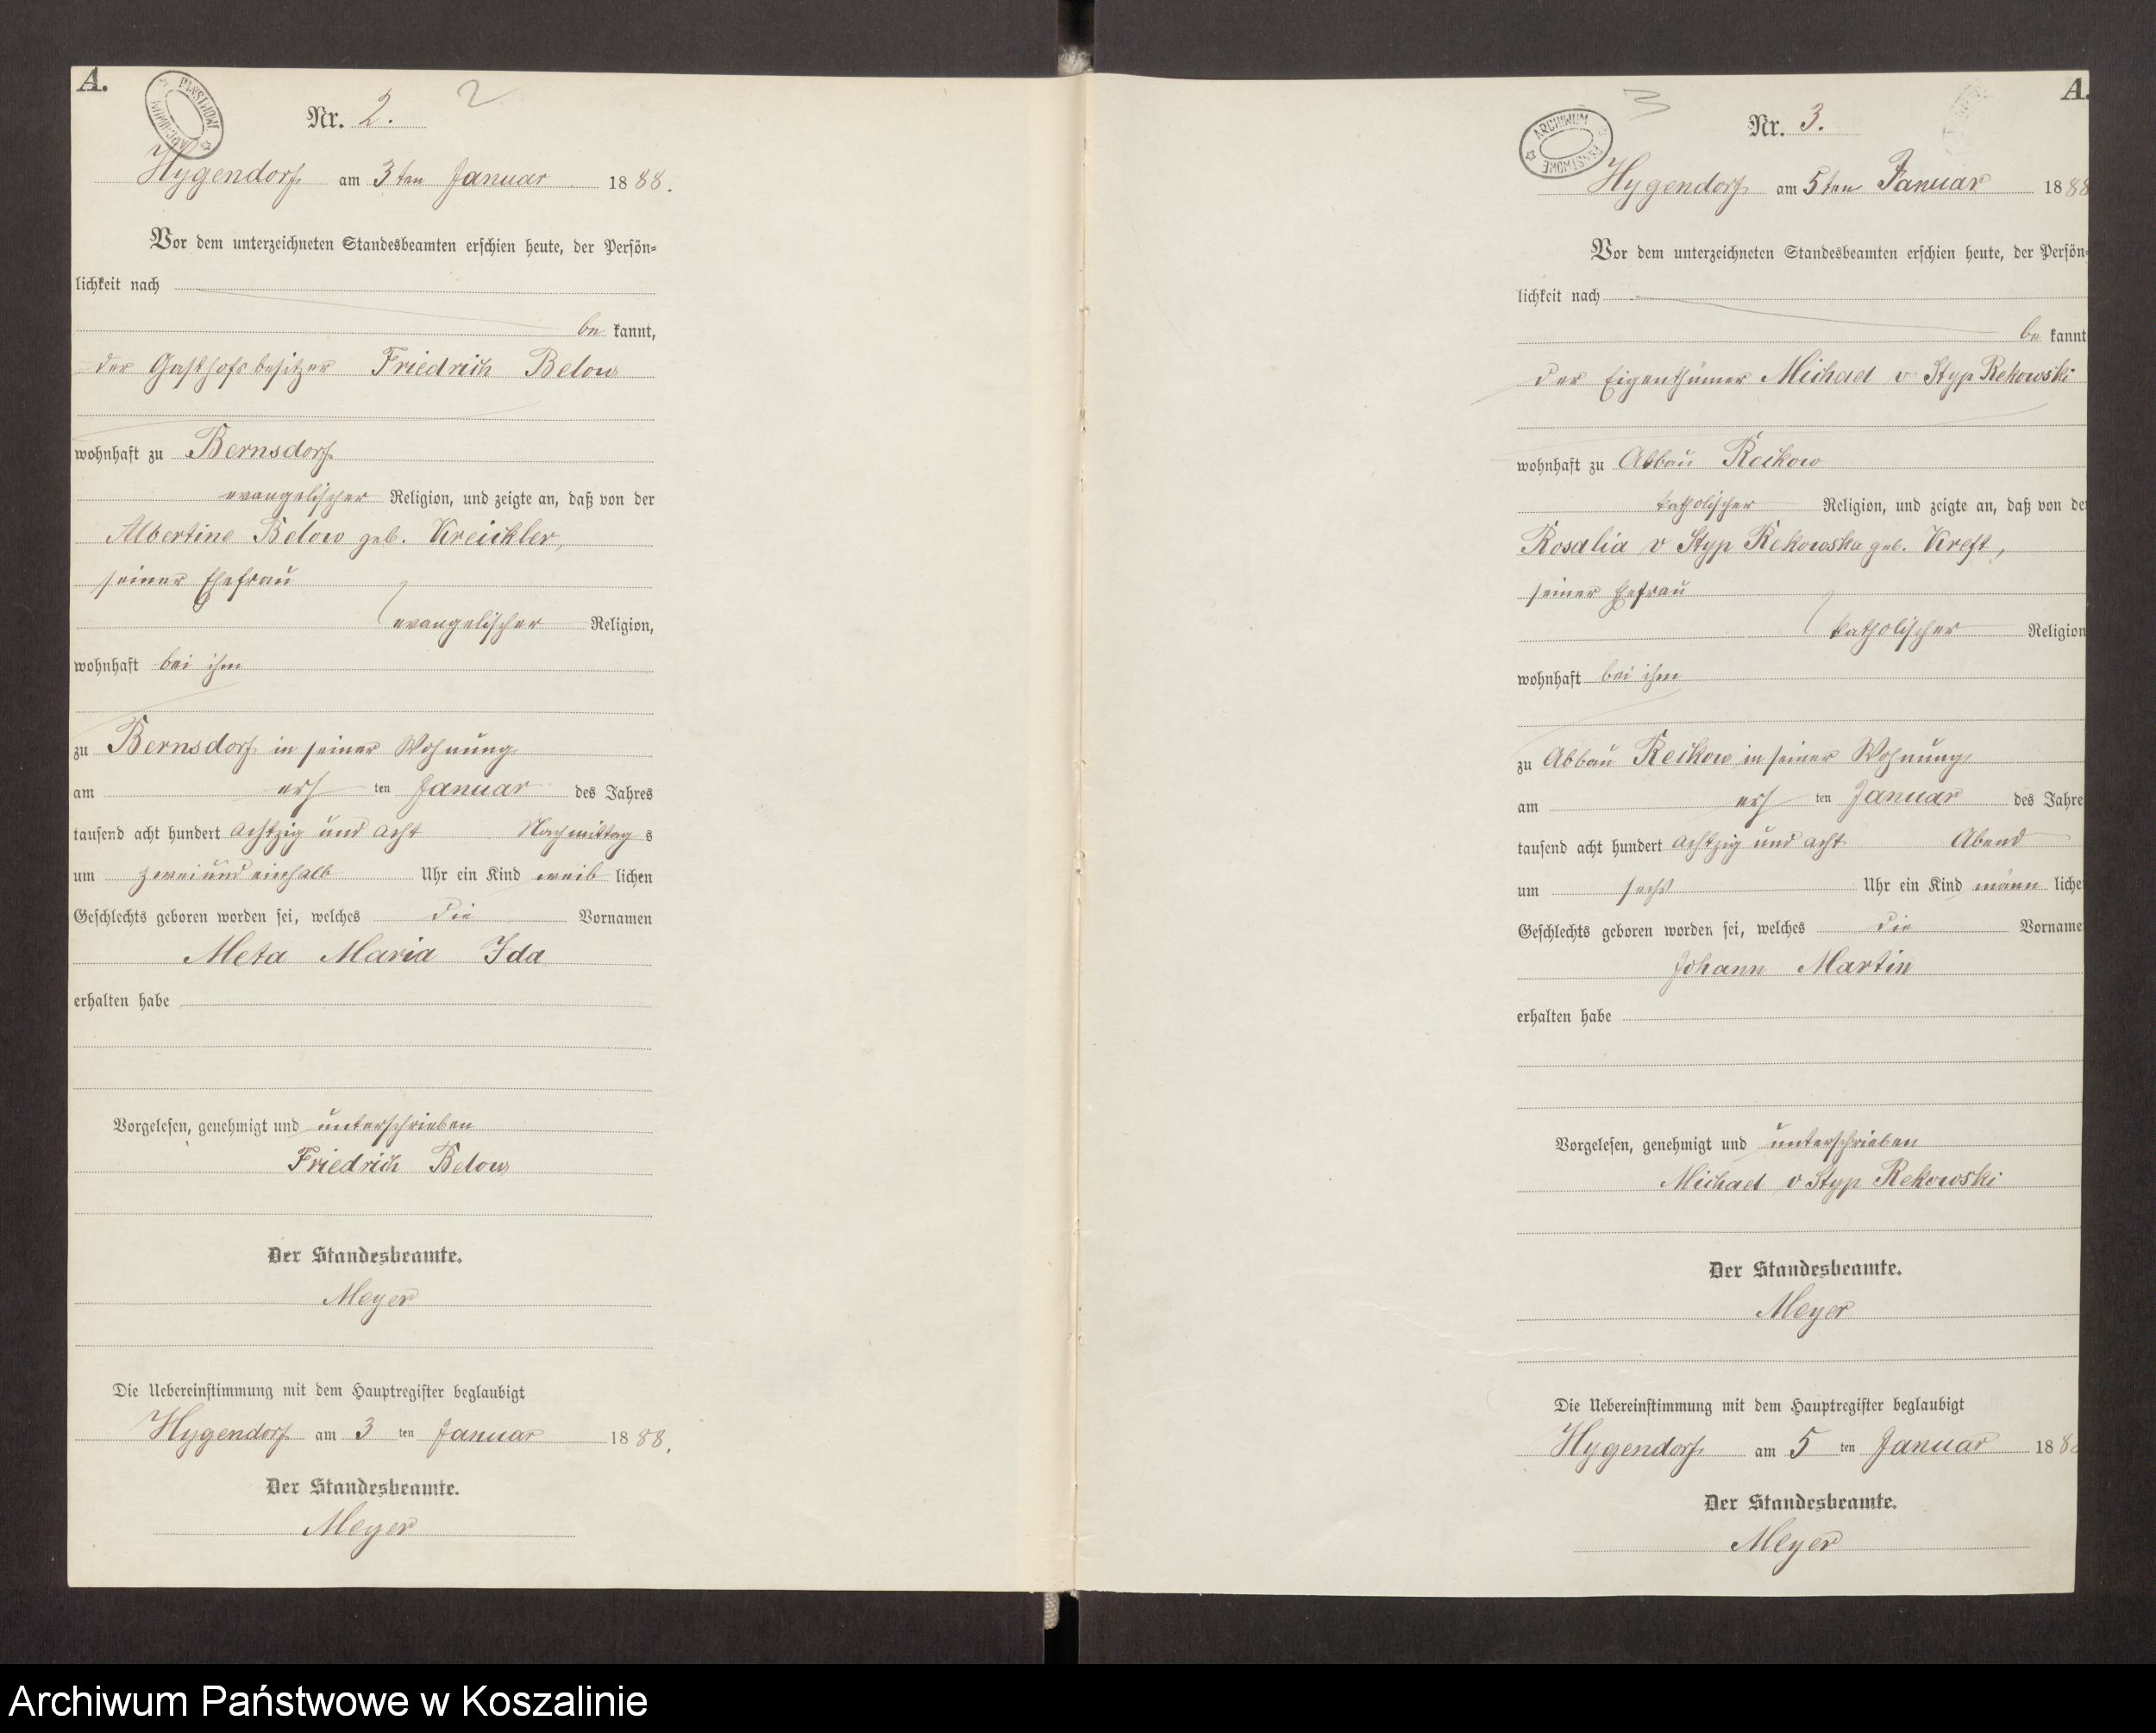 A.
ARCHIWUM PAŃSTWOWE
2
Nr. 2.
Hygendorf am 3ten Januar 1888.
Vor dem unterzeichneten Standesbeamten erschien heute, der Persön=
lichkeit nach
be kannt,
der Gasthofsbesitzer Friedrich Below
wohnhaft zu Bernsdorf
evangelischer Religion, und zeigte an, daß von der
Albertine Below geb. Kreickler,
seiner Ehefrau
evangelischer Religion,
wohnhaft bei ihm
zu Bernsdorf in seiner Wohnung
am erst ten Januar des Jahres
tausend acht hundert achtzig und acht Nachmittag s
um zwei und einhalb Uhr ein Kind weib lichen
Geschlechts geboren worden sei, welches die Vornamen
Meta Maria Ida
erhalten habe
Vorgelesen, genehmigt und unterschrieben
Friedrich Below
Der Standesbeamte.
Meyer
Die Uebereinstimmung mit dem Hauptregister beglaubigt
Hygendorf am 3 ten Januar 1888.
Der Standesbeamte.
Meyer
A.
ARCHIWUM PAŃSTWOWE
3
Nr. 3.
Hygendorf am 5ten Januar 1888
Vor dem unterzeichneten Standesbeamten erschien heute, der Persön=
lichkeit nach
be kannt
der Eigenthümer Michael v Styp Rekowski
wohnhaft zu Abbau Reckow
katholischer Religion, und zeigte an, daß von de
Rosalia v Styp Rekowska geb. Kreft,
seiner Ehefrau
katholischer Religion
wohnhaft bei ihm
zu Abbau Reckow in seiner Wohnung
am erst ten Januar des Jahre
tausend acht hundert achtzig und acht Abend
um sechs Uhr ein Kind männ liche
Geschlechts geboren worden sei, welches die Vorname
Johann Martin
erhalten habe
Vorgelesen, genehmigt und unterschrieben
Michael v Styp Rekowski
Der Standesbeamte.
Meyer
Die Uebereinstimmung mit dem Hauptregister beglaubigt
Hygendorf am 5 ten Januar 188
Der Standesbeamte.
Meyer
Archiwum Państwowe w Koszalinie